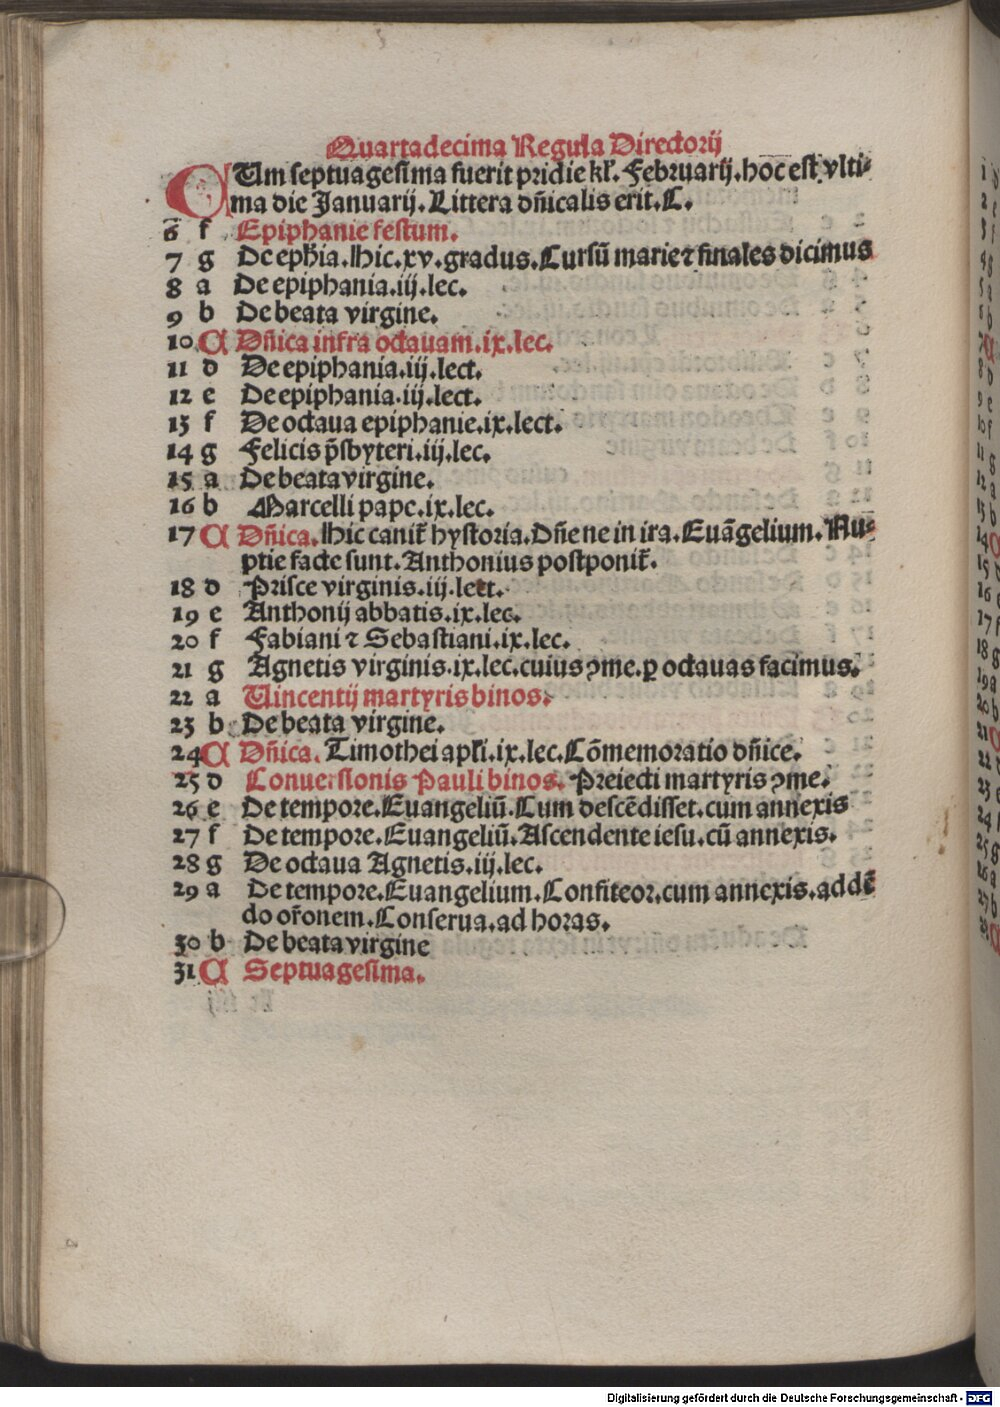 Quartadecima Regula Directorij
CUm septuagesima fuerit pridie kl̄. Februarij. hoc est vlti-
ma die Januarij. Littera dn̄icalis erit. C.
6 f Epiphanie festum.
7 g De eph̄ia. Hic. xv. gradus. Cursū marie ⁊ finales dicimus
8 a De epiphania. iij. lec.
9 b De beata virgine.
10 C Dn̄ica infra octauam. ix. lec.
11 d De epiphania. iij. lect.
12 e De epiphania. iij. lect.
13 f De octaua epiphanie. ix. lect.
14 g Felicis p̄sbyteri. iij. lec.
15 a De beata virgine.
16 b Marcelli pape. ix. lec.
17 C Dn̄ica. Hic canit̄ hystoria. Dn̄e ne in ira. Euāgelium. Nu-
ptie facte sunt. Anthonius postponit̄.
18 d Prisce virginis. iij. lect.
19 e Anthonij abbatis. ix. lec.
20 f Fabiani ⁊ Sebastiani. ix. lec.
21 g Agnetis virginis. ix. lec. cuius ꝯme. ꝑ octauas facimus.
22 a Uincentij martyris binos.
23 b De beata virgine.
24 C Dn̄ica. Timothei apl̄i. ix. lec. Cōmemoratio dn̄ice.
25 d Conuersionis Pauli binos. Preiecti martyris ꝯme.
26 e De tempore. Euangeliū. Cum descēdisset. cum annexis
27 f De tempore. Euangeliū. Ascendente iesu. cū annexis.
28 g De octaua Agnetis. iij. lec.
29 a De tempore. Euangelium. Confiteor. cum annexis. ad dē
do or̄onem. Conserua. ad horas.
30 b De beata virgine
31 C Septuagesima.
Digitalisierung gefördert durch die Deutsche Forschungsgemeinschaft - DFG